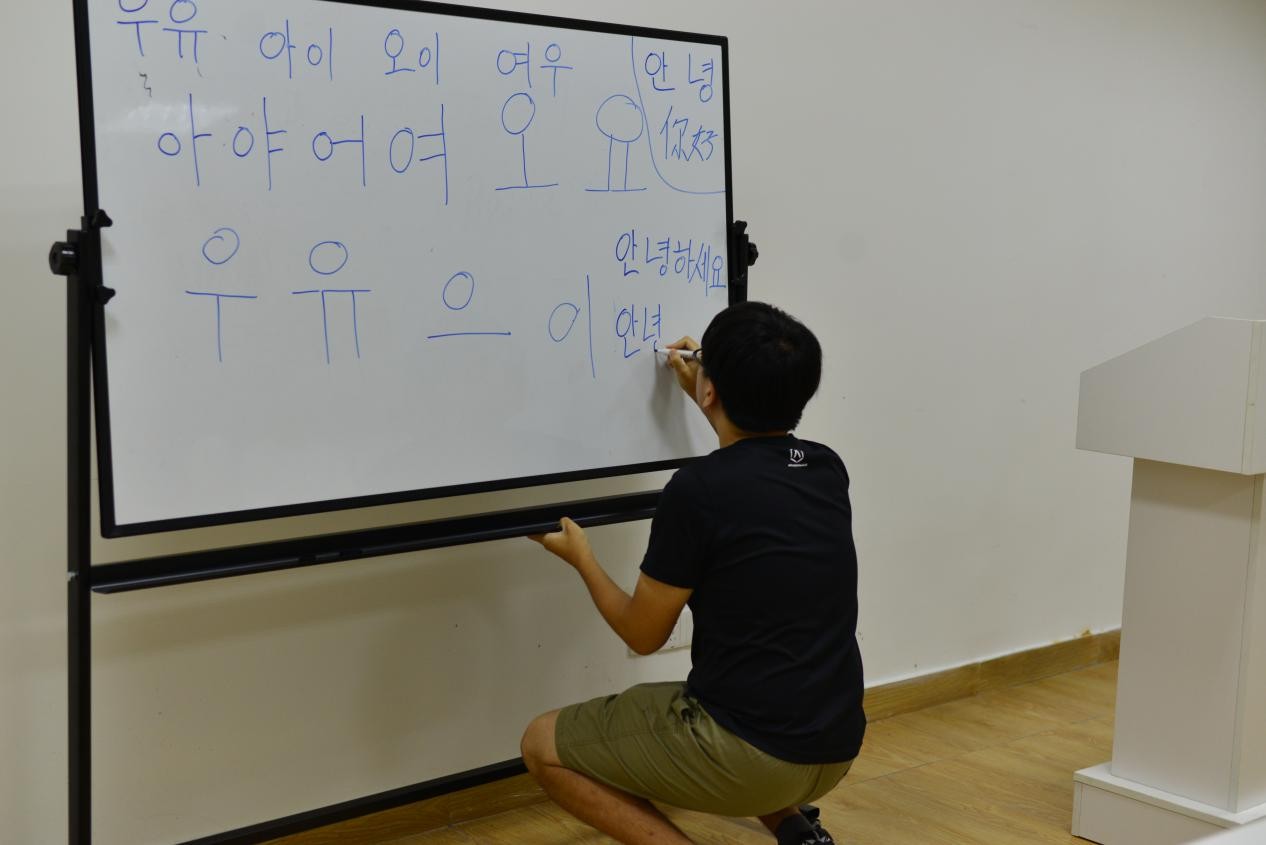 우유 아이 오이 여우
안녕
你好
아 야 어 여 오 요
안녕하세요
우 유 으 이
안녕